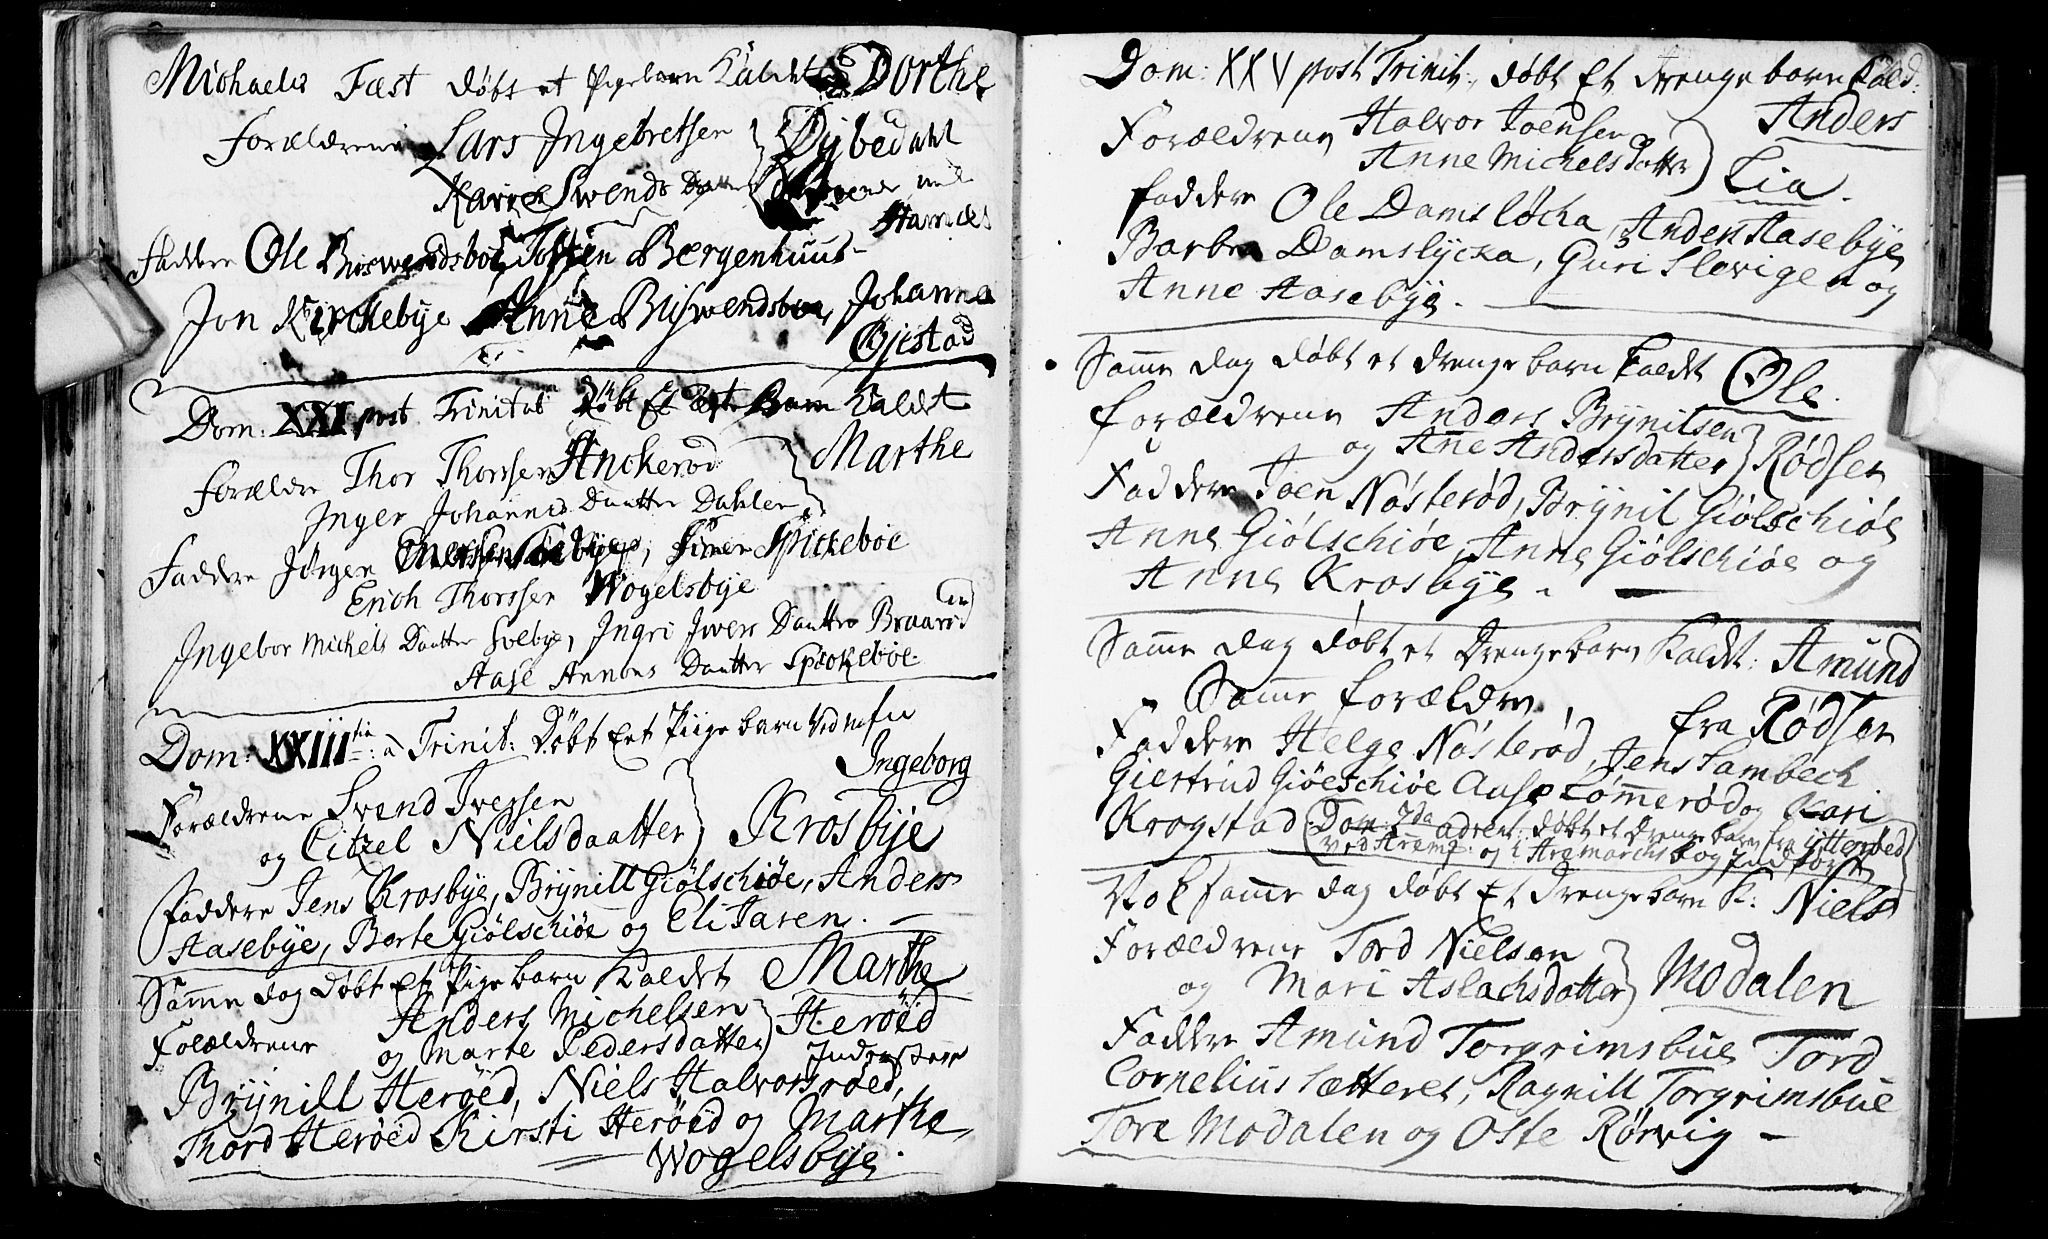 Michaelis Fæst døbt et Pigebarn Kaldet Dorthe
Forældrene Lars Ingebretsen
Karre Swends Dybedahl
Faddere Ole Buswendsboe, Bergenhuus
Jon Kirckebye Anne Buswendsboe, Johanna
Gjestad
Dom: XXI post Trinitat døbt Et Barn Kaldet
Marthe
Forældre Thor Thorssen Anckerød
Inger Johannis Daatter Dahlen
Faddere Jörgen Solbye, Simen Spickeböe
Erich Thorssen Wogelsbye
Ingebor Michels Daatter Solbye, Ingri Iwers Daatter Braarød
Aase Annons Daatter Spickeböe
Dom: XXIII tia: a Trinit: Döbt Eet Piige barn Ved nafn
Ingeborg
Forældrene Svend Ivessen
og Citzel Nielsdaatter Krosbye
Faddere Jens Krosbye, Brynill Giölschiöe, Anders
Aasebye, Borte Giölschiöe og Eli Taren.
Samme dag Döbt Et Pige barn Kaldet Marthe
Folældrene Anders Michelsen Heröed
og Marte Pedersdatter
Brynill Heröed, Niels Halvorsröed,
Thord Heröed Kirsti Heröed og Marthe
Wogelsbye.
Dom: XXV post Trinit., döbt Et drenge barn Kald:
Anders
Forældrene Halvor Joensen
Anne Michels Datter Lia.
faddere Ole Damsløcka, Anders Aasebye
Barbra Damslycka, Guri Slevigen og
Anne Aasebye.
Samme dag döbt et drenge barn kaldet Ole.
forældrene Anders Brynilsen
og Anne Andersdatter Rödsen
Faddere Joen Nösteröd, Brynil Giölschiöe
Anne Giölschiöe, Anne Giölschiöe og
Anne Krosbye.
Samme dag döbt et Drengebarn Kaldt: Amund
Samme forældre,
fra Rödsen
Faddere Helge Nösteröd, Jens Lambech
Giertrud Giöelschiöe Aase Lömmeröd og Kari
Krogstad. Dom: 2da advent: döbt et drenge barn fra Ytteröed
ved Arem: og i Aremarchs k og Indförst
Nok samme dag döbt Et drengebarn K: Niels
Forældrene Tord Nielsen
og Mari Aslachsdatter Modalen
Faddere Amund Torgrimsbue Tord
Cornelius Sætteret, Ragnill Torgrimsbue
Tore Modalen og Oste Rörvig